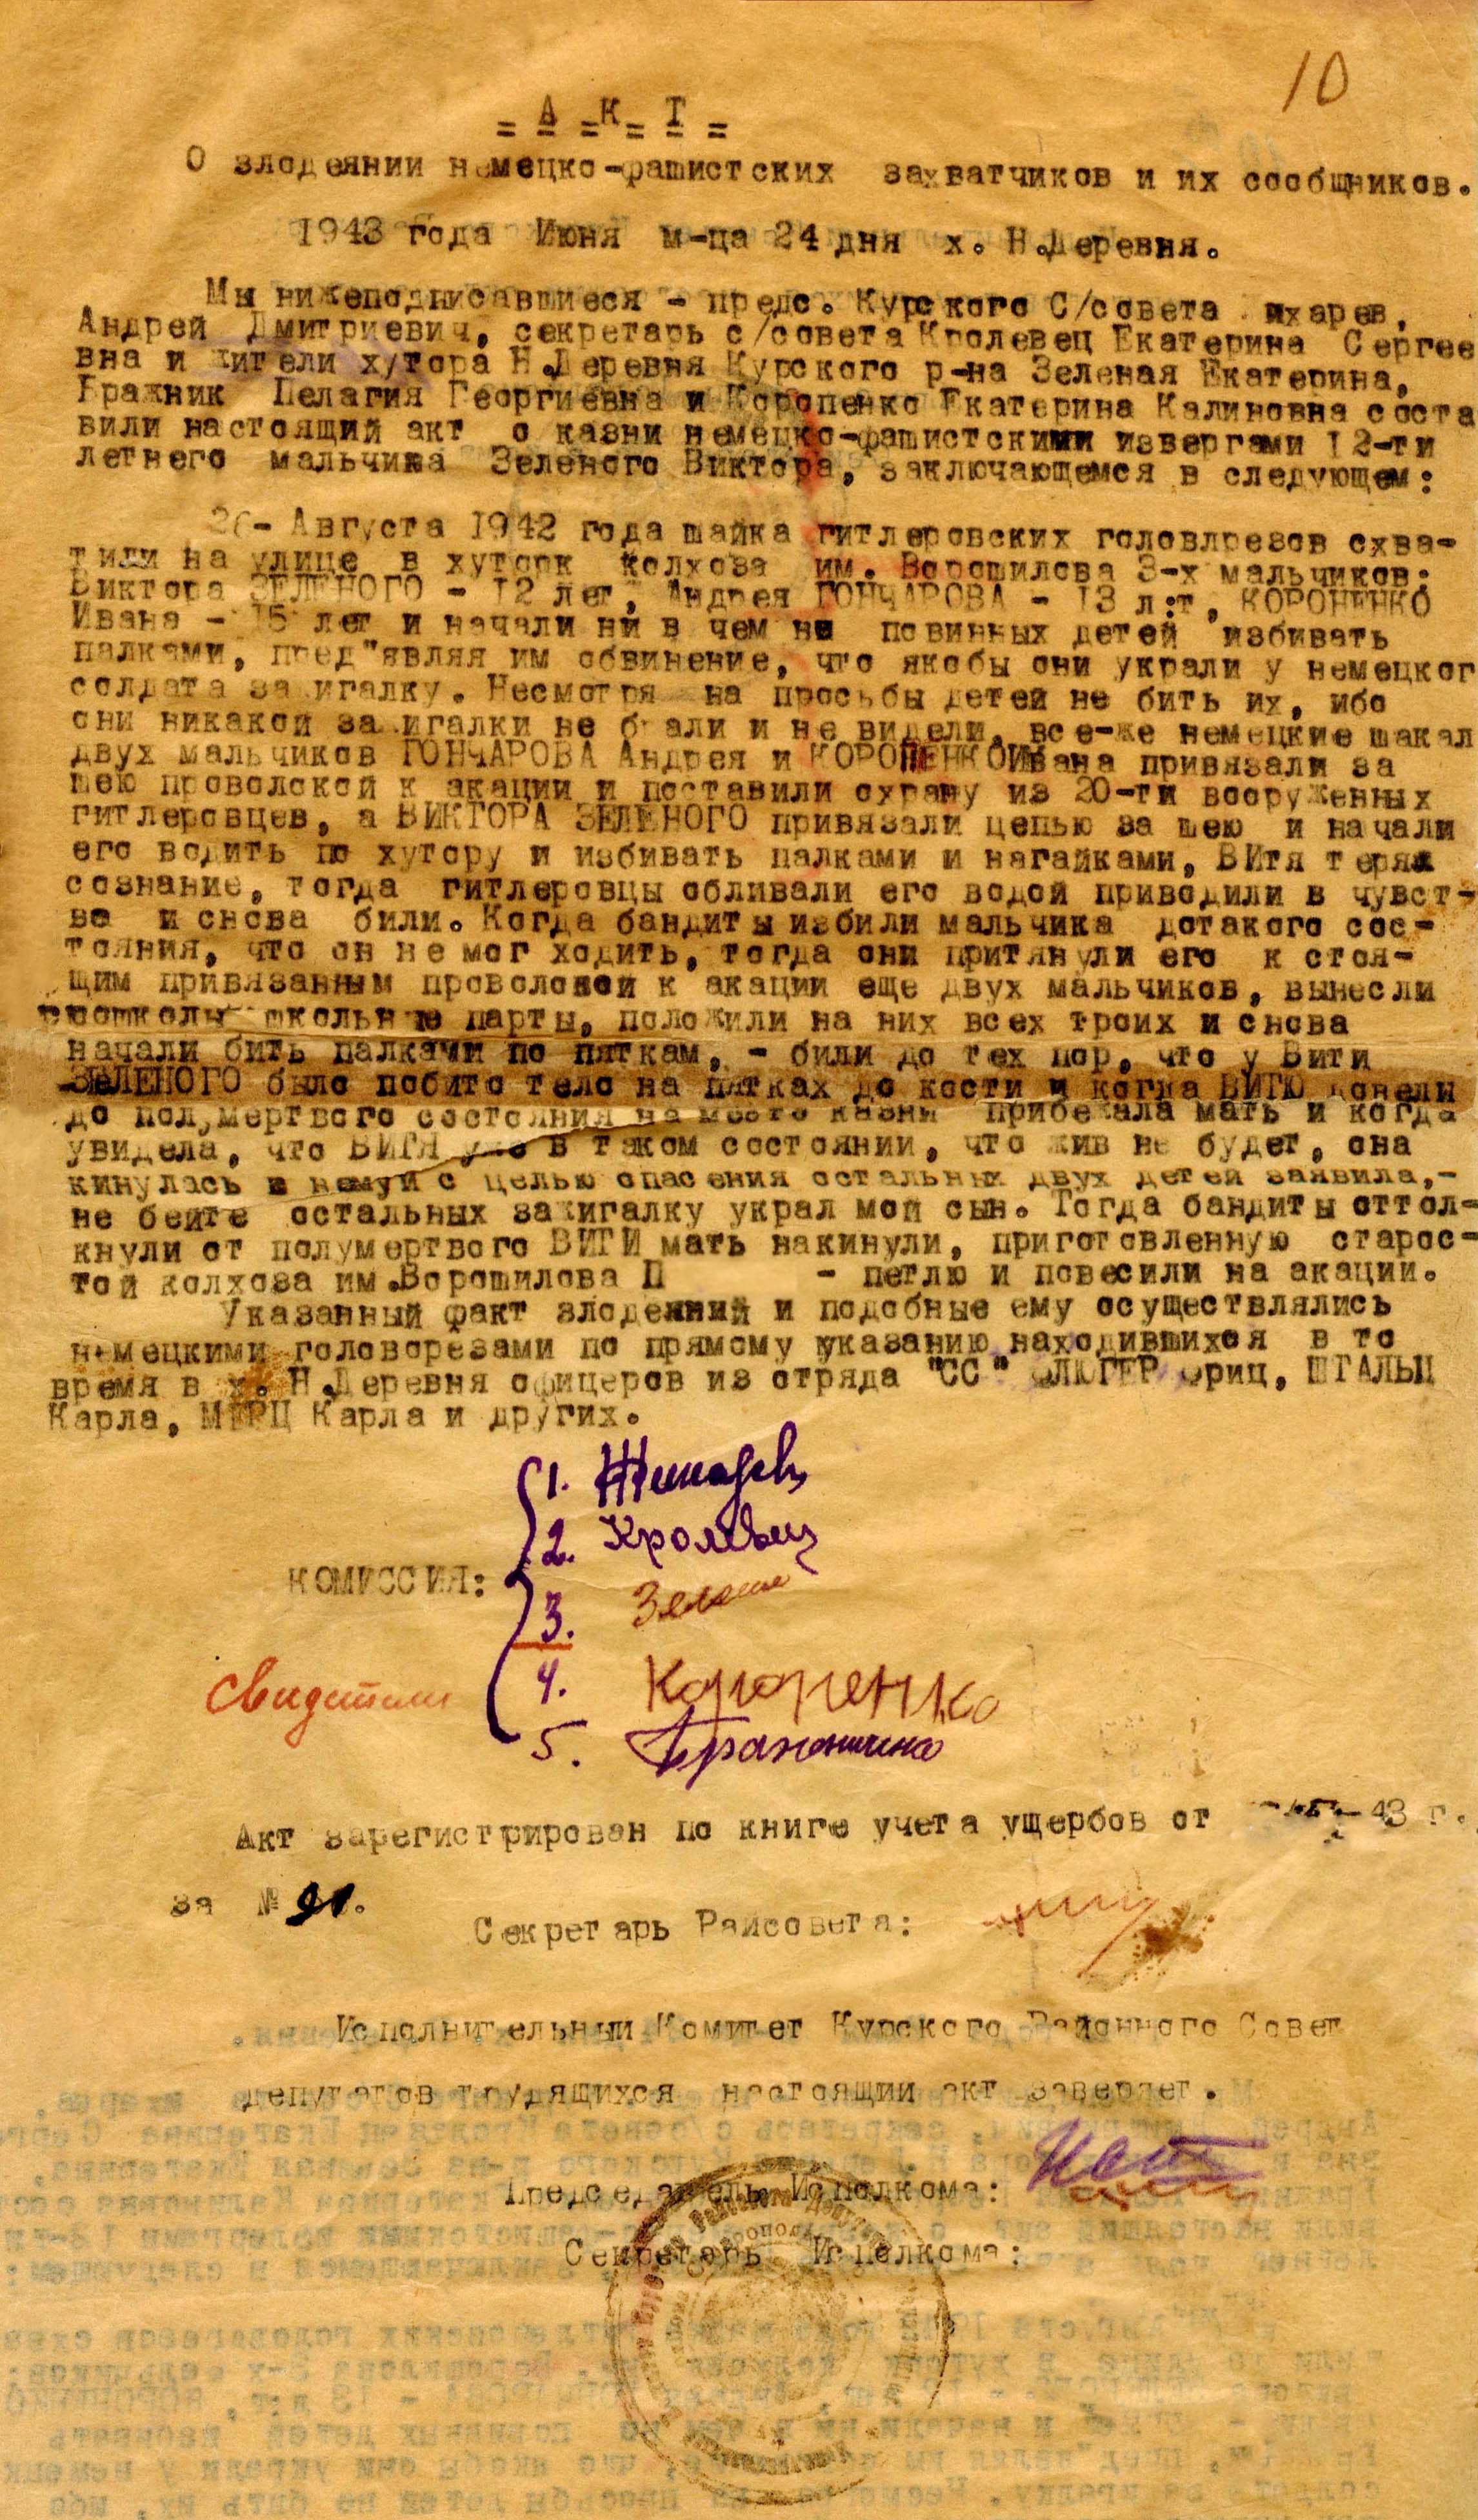 10
= А = К = Т =
О злодеянии немецко-фашистских захватчиков и их сообщников.
1943 года Июня м-ца 24 дня х. Н.Деревня.
Мы нижеподписавшиеся - предс. Курского С/совета ихарев,
Андрей Дмитриевич, секретарь с/совета Кролевец Екатерина Сергее
вна и жители хутора Н.Деревня Курского р-на Зеленая Екатерина,
Бражник Пелагия Георгиевна и Коропенко Екатерина Калиновна соста
вили настоящий акт о казни немецко-фашистскими извергами 12-ти
летнего мальчика Зеленого Виктора, заключающемся в следующем:
26- Августа 1942 года шайка гитлеровских головорезов схва-
тили на улице в хуторе колхоза им. Ворошилова 3-х мальчиков:
Виктора ЗЕЛЕНОГО - 12 лет, Андрея ГОНЧАРОВА - 13 лет, КОРОПЕНКО
Ивана - 15 лет и начали ни в чем не повинных детей избивать
палками, пред"являя им обвинение, что якобы они украли у немецког
солдата зажигалку. Несмотря на просьбы детей не бить их, ибо
они никакой зажигалки не брали и не видели, все-же немецкие шакал
двух мальчиков ГОНЧАРОВА Андрея и КОРОПЕНКО Ивана привязали за
шею проволокой к акации и поставили охрану из 20-ти вооруженных
гитлеровцев, а ВИКТОРА ЗЕЛЕНОГО привязали цепью за шею и начали
его водить по хутору и избивать палками и нагайками, ВИтя терял
сознание, тогда гитлеровцы обливали его водой приводили в чувст-
во и снова били. Когда бандиты избили мальчика дотакого сос-
тояния, что он не мог ходить, тогда они притянули его к стоя-
щим привязанным проволокой к акации еще двух мальчиков, вынесли
школьные парты, положили на них всех троих и снова
начали бить палками по пяткам, - били до тех пор, что у Вити
ЗЕЛЕНОГО было побито тело на пятках до кости и когда ВИТЮ довели
до полумертвого состояния на место казни прибежала мать и когда
увидела, что ВИТЯ уже в таком состоянии, что жив не будет, она
кинулась к нему и с целью спасения остальных двух детей заявила,-
не бейте остальных зажигалку украл мой сын. Тогда бандиты оттол-
кнули от полумертвого ВИТИ мать накинули, приготовленную старос-
той колхоза им.Ворошилова П - петлю и повесили на акации.
Указанный факт злодеяний и подобные ему осуществлялись
немецкими головорезами по прямому указанию находившихся в то
время в х. Н.Деревня офицеров из отряда "СС" ФЛЮГЕР Фриц, ШТАЛЬЦ
Карла, МЕРЦ Карла и других.
1.
2. Кролевец
КОМИССИЯ:
3. Зелен
свидетели
4. Коропенко
5.
Акт зарегистрирован по книге учета ущербов от 43 г.
за № 91.
Секретарь Райсовета:
Исполнительный Комитет Курского Районного Совет
депутатов трудящихся настоящий акт заверяет.
Председатель Исполкома:
Секретарь Исполкома: